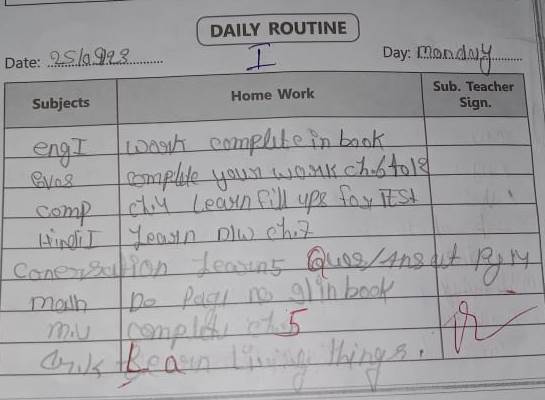 DAILY ROUTINE
I
Date: 25/09/23 Day: monday
Subjects Home Work Sub. Teacher Sign.
eng I work complete in book
evos complete your work ch.6 to 18
comp ch.4 Learn fill ups for TEST
Hindi I Learn D/W ch.7
Conersation Learn 5 Ques/Ans at
math Do Page no 91 in book
m.v complete ch.5
G.K Learn living things.